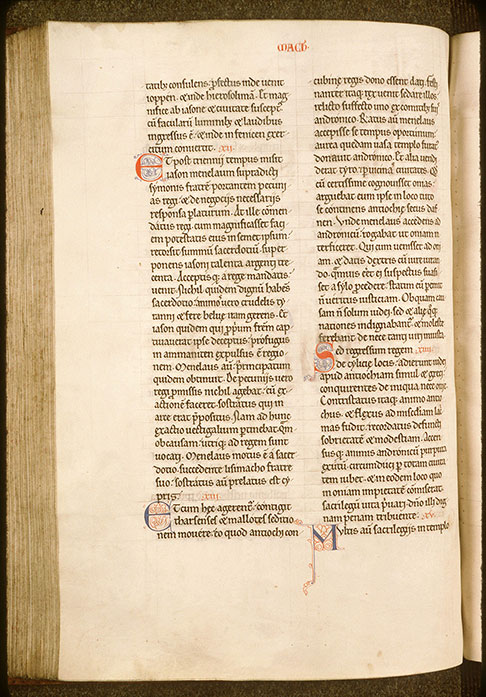 MACH·
tatib; consulens. p̄fectus inde venit
ioppen. & inde hierosolimā. Et mag
nifice ab iasone & civitate suscept᷒
cū facularū luminib; & laudibus
ingressus ē. & inde in fenicen exer
citum convertit. XII.
Et post triennii tempus misit
iason menelaum supradicti
symonis fratrē portantem pecuni
as regi & de negociis necessariis
responsa platurum. At ille cōmen
datus regi. cum magnificasset faci
em potestatis eius. in semet ipsum
retorsit summū sacerdotiū. super
ponens iasoni talenta argenti tre
centa. Acceptisq; a rege mandatis
venit. Nichil quidem dignū habēs
sacerdotio. animo vero crudelis ty
ranni. & fere belue iram gerens. Et
iason quidem qui p̄prium frēm cap
tivaverat ipse deceptus. profugus
in ammaniten expulsus ē regio
nem. Menelaus aū principatum
quidem obtinuit. De pecuniis vero
regi p̄missis nichil agebat. cū ex
actionē faceret sostratus qui in
arce erat p̄positus. Nam ad hunc
exactio vectigalium ptinebat. Quā
ob causam utriq; ad regem sunt
vocati. Menelaus motus ē a sacer
dotio. succedente lisimacho fratre
suo. sostratus aū prelatus est cy
priis. XIII.
Et cum hec agerent᷒. contigit
tharsenses & mallotes seditio
nem movere. eo quod antiochi con
cubine regis dono essent dati. Festi
nanter itaq; rex venit sedare illos.
relicto suffecto uno ex comitib; suis
andronico. Ratus aū menelaus
accepisse se tempus oportunum.
aurea quedam vasa templo furat᷒
donavit andronico. Et alia vendi
derat tyro. & p vicinas civitates. Qd
cū certissime cognovisset onias.
arguebat eum ipse in loco tuto
se continens antiochie secus daf
nen. Unde menelaus accedens ad
andronicū. rogabat ut oniam in
terficeret. Qui cum venisset ad oni
am. & datis dextris cū iure iuran
do. quāvis ei ēt suspectus. suasis
set a sylo p̄cedere. statim eū pemit
n̄ veritus iusticiam. Ob quam cau
sam n̄ solum iudei. sed & alie q̄q;
nationes indignabant᷒. & moleste
ferebant de nece tanti viri iniusta.
Sed regressum regem XIIII.
de cylicie locis. adierunt iudei
apud antiochiam simul & greci.
conquerentes de iniqua nece onie.
Contristatus itaq; animo antio
chus. & flexus ad misericordiam lacri
mas fudit. recordatus defuncti
sobrietatē & modestiam. Accen
susq; animis andronicū purpura
exutū. circumduci p totam civita
tem iubet. & in eodem loco quo
in oniam impietatē cōmiserat
sacrilegū vita privari. dn̄o illi dig
nam penam tribuente. XV.
Multis aū sacrilegiis in templo